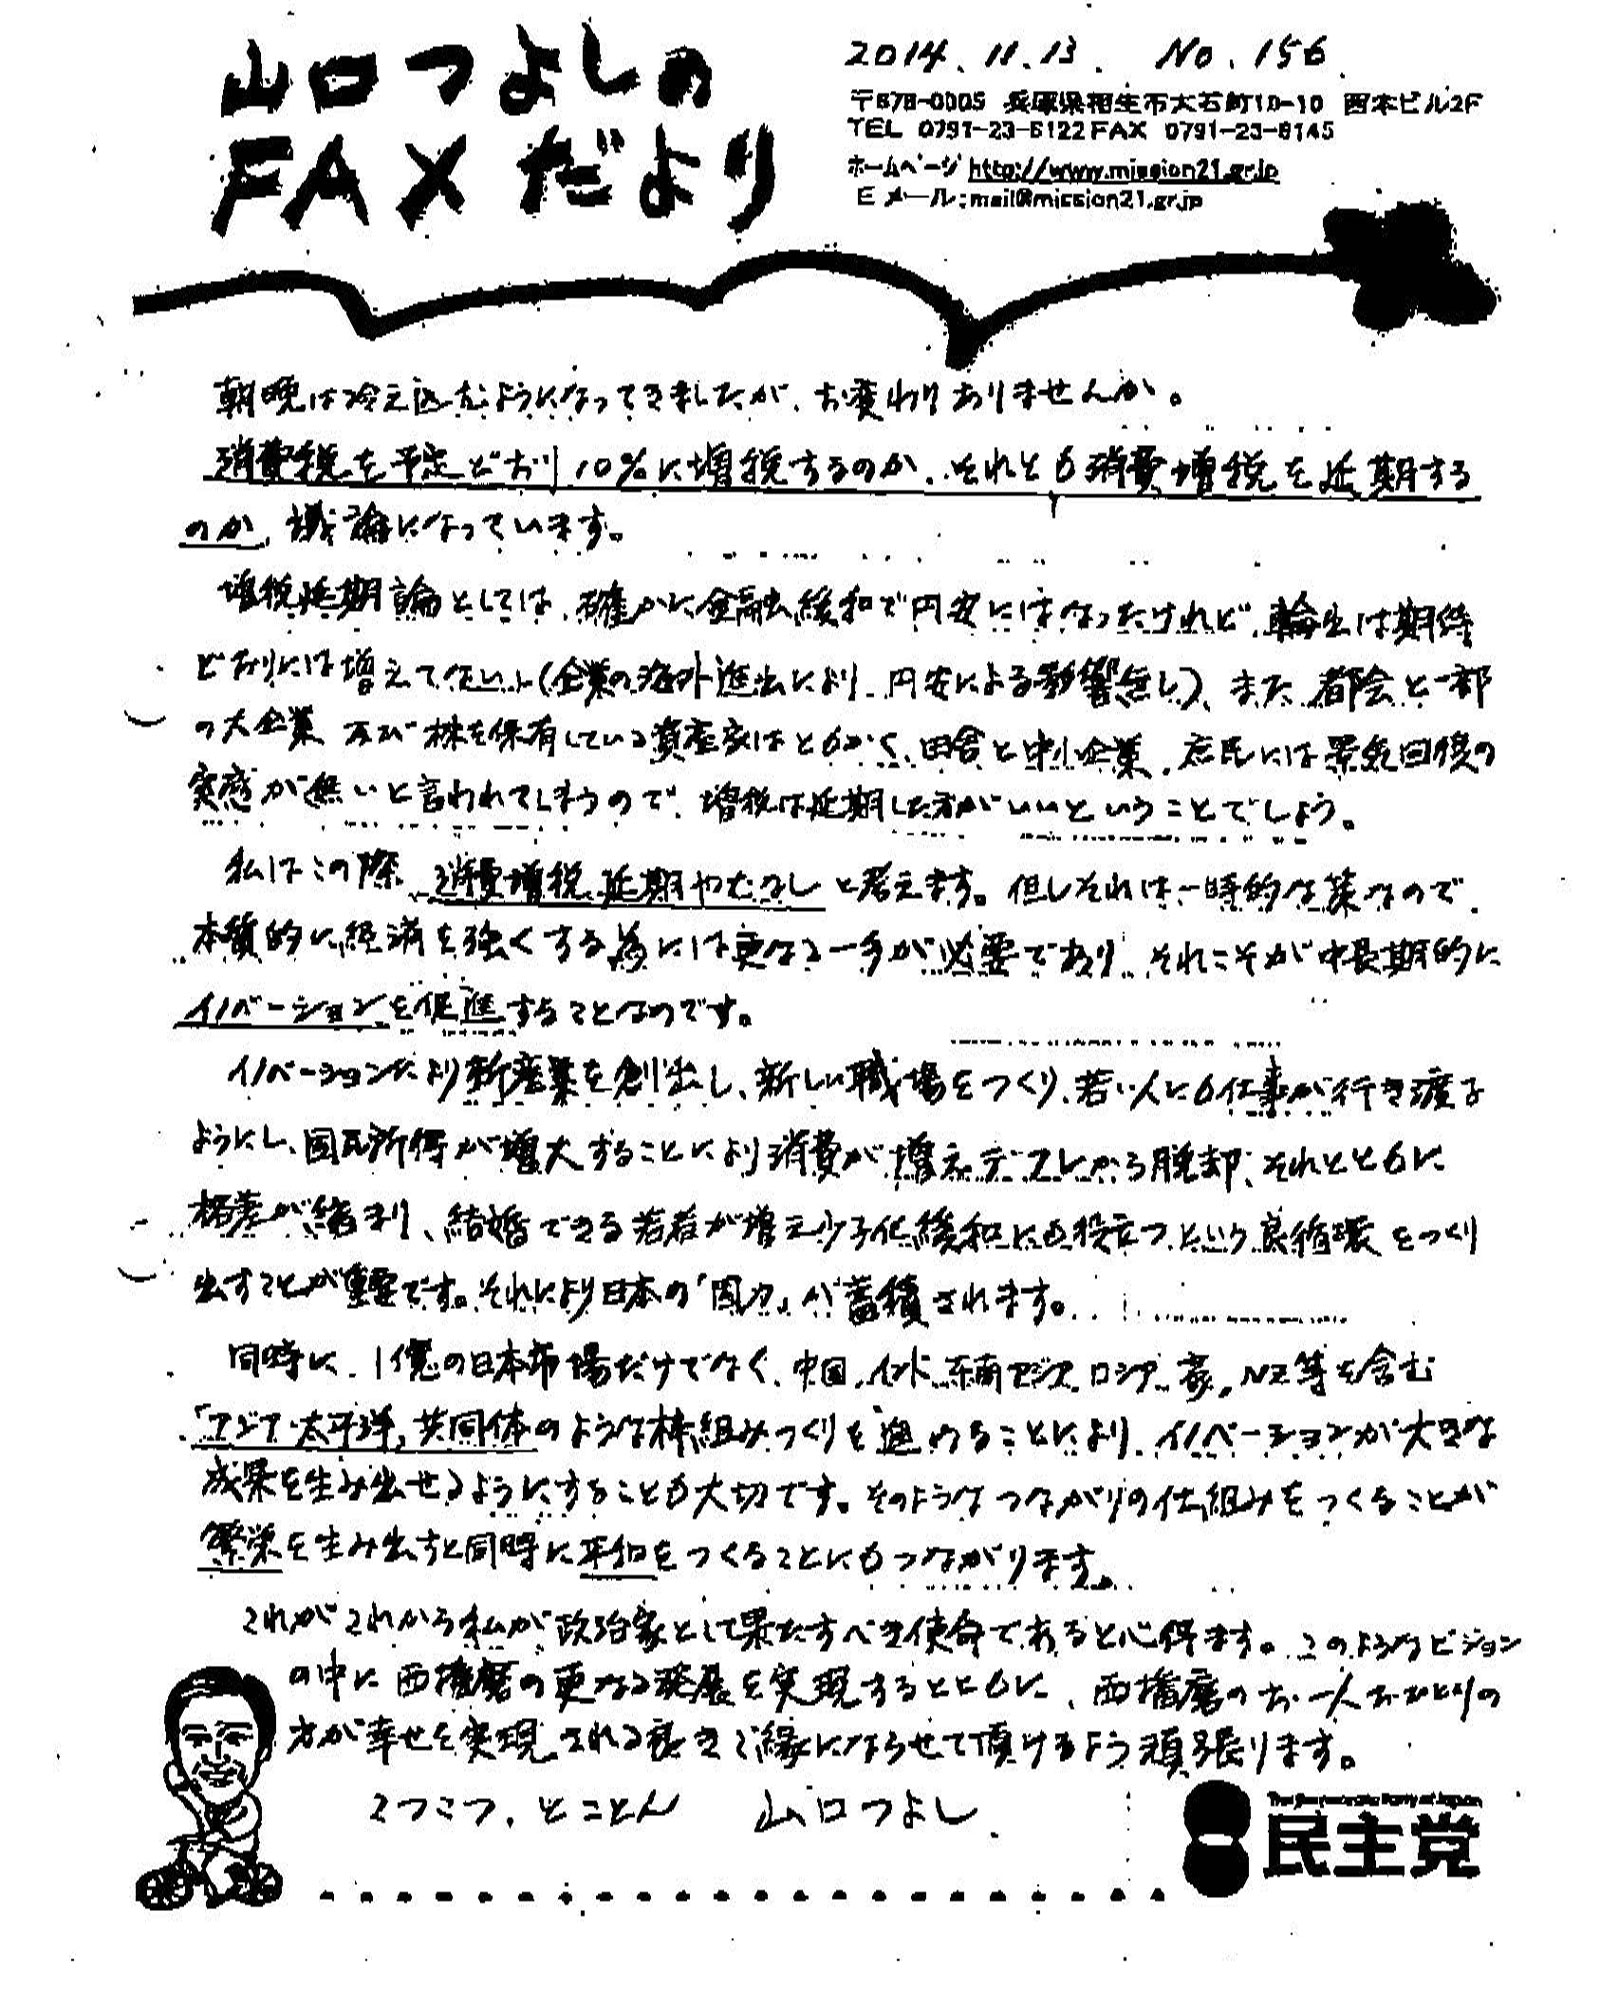 山口つよしの
FAXだより
2014.11.13. No.156.
〒678-0005 兵庫県相生市大石町19-10 西本ビル2F
TEL 0791-23-6122 FAX 0791-23-8145
ホームページ http://www.mission21.gr.jp
Eメール:mail@mission21.gr.jp
朝晩は冷え込むようになってきましたが、お変わりありませんか。
消費税を予定どおり10%に増税するのか、それとも消費増税を延期する
のか、議論になっています。
増税延期論としては、確かに金融緩和で円安にはなったけれど、輸出は期待
どおりには増えてない(企業の海外進出により、円安による影響無し)、また、都会と一部
の大企業、及び株を保有している資産家はともかく、田舎と中小企業、庶民には景気回復の
実感が無いと言われてしまうので、増税は延期した方がいいということでしょう。
私はこの際、消費増税延期やむなしと考えます。但しそれは一時的な策なので、
本質的に経済を強くする為には更なる一手が必要であり、それこそが中長期的に
イノベーションを促進することなのです。
イノベーションにより新産業を創出し、新しい職場をつくり、若い人にも仕事が行き渡る
ようにし、国民所得が増大することにより消費が増えデフレから脱却、それとともに
格差が縮まり、結婚できる若者が増え少子化緩和にも役立つ、という良循環をつくり
出すことが重要です。それにより日本の「国力」が蓄積されます。
同時に、1億の日本市場だけでなく、中国、インド、東南アジア、ロシア、豪、NZ等を含む
「アジア・太平洋」共同体のような枠組みづくりを進めることにより、イノベーションが大きな
成果を生み出せるようにすることも大切です。そのようなつながりの仕組みをつくることが
繁栄を生み出すと同時に平和をつくることにもつながります。
これがこれから私が政治家として果たすべき使命であると心得ます。このようなビジョン
の中に西播磨の更なる発展を実現するとともに、西播磨のお一人おひとりの
方が幸せを実現される良きご縁にならせて頂けるよう頑張ります。
こつこつ、とことん 山口つよし
The Democratic Party of Japan
民主党